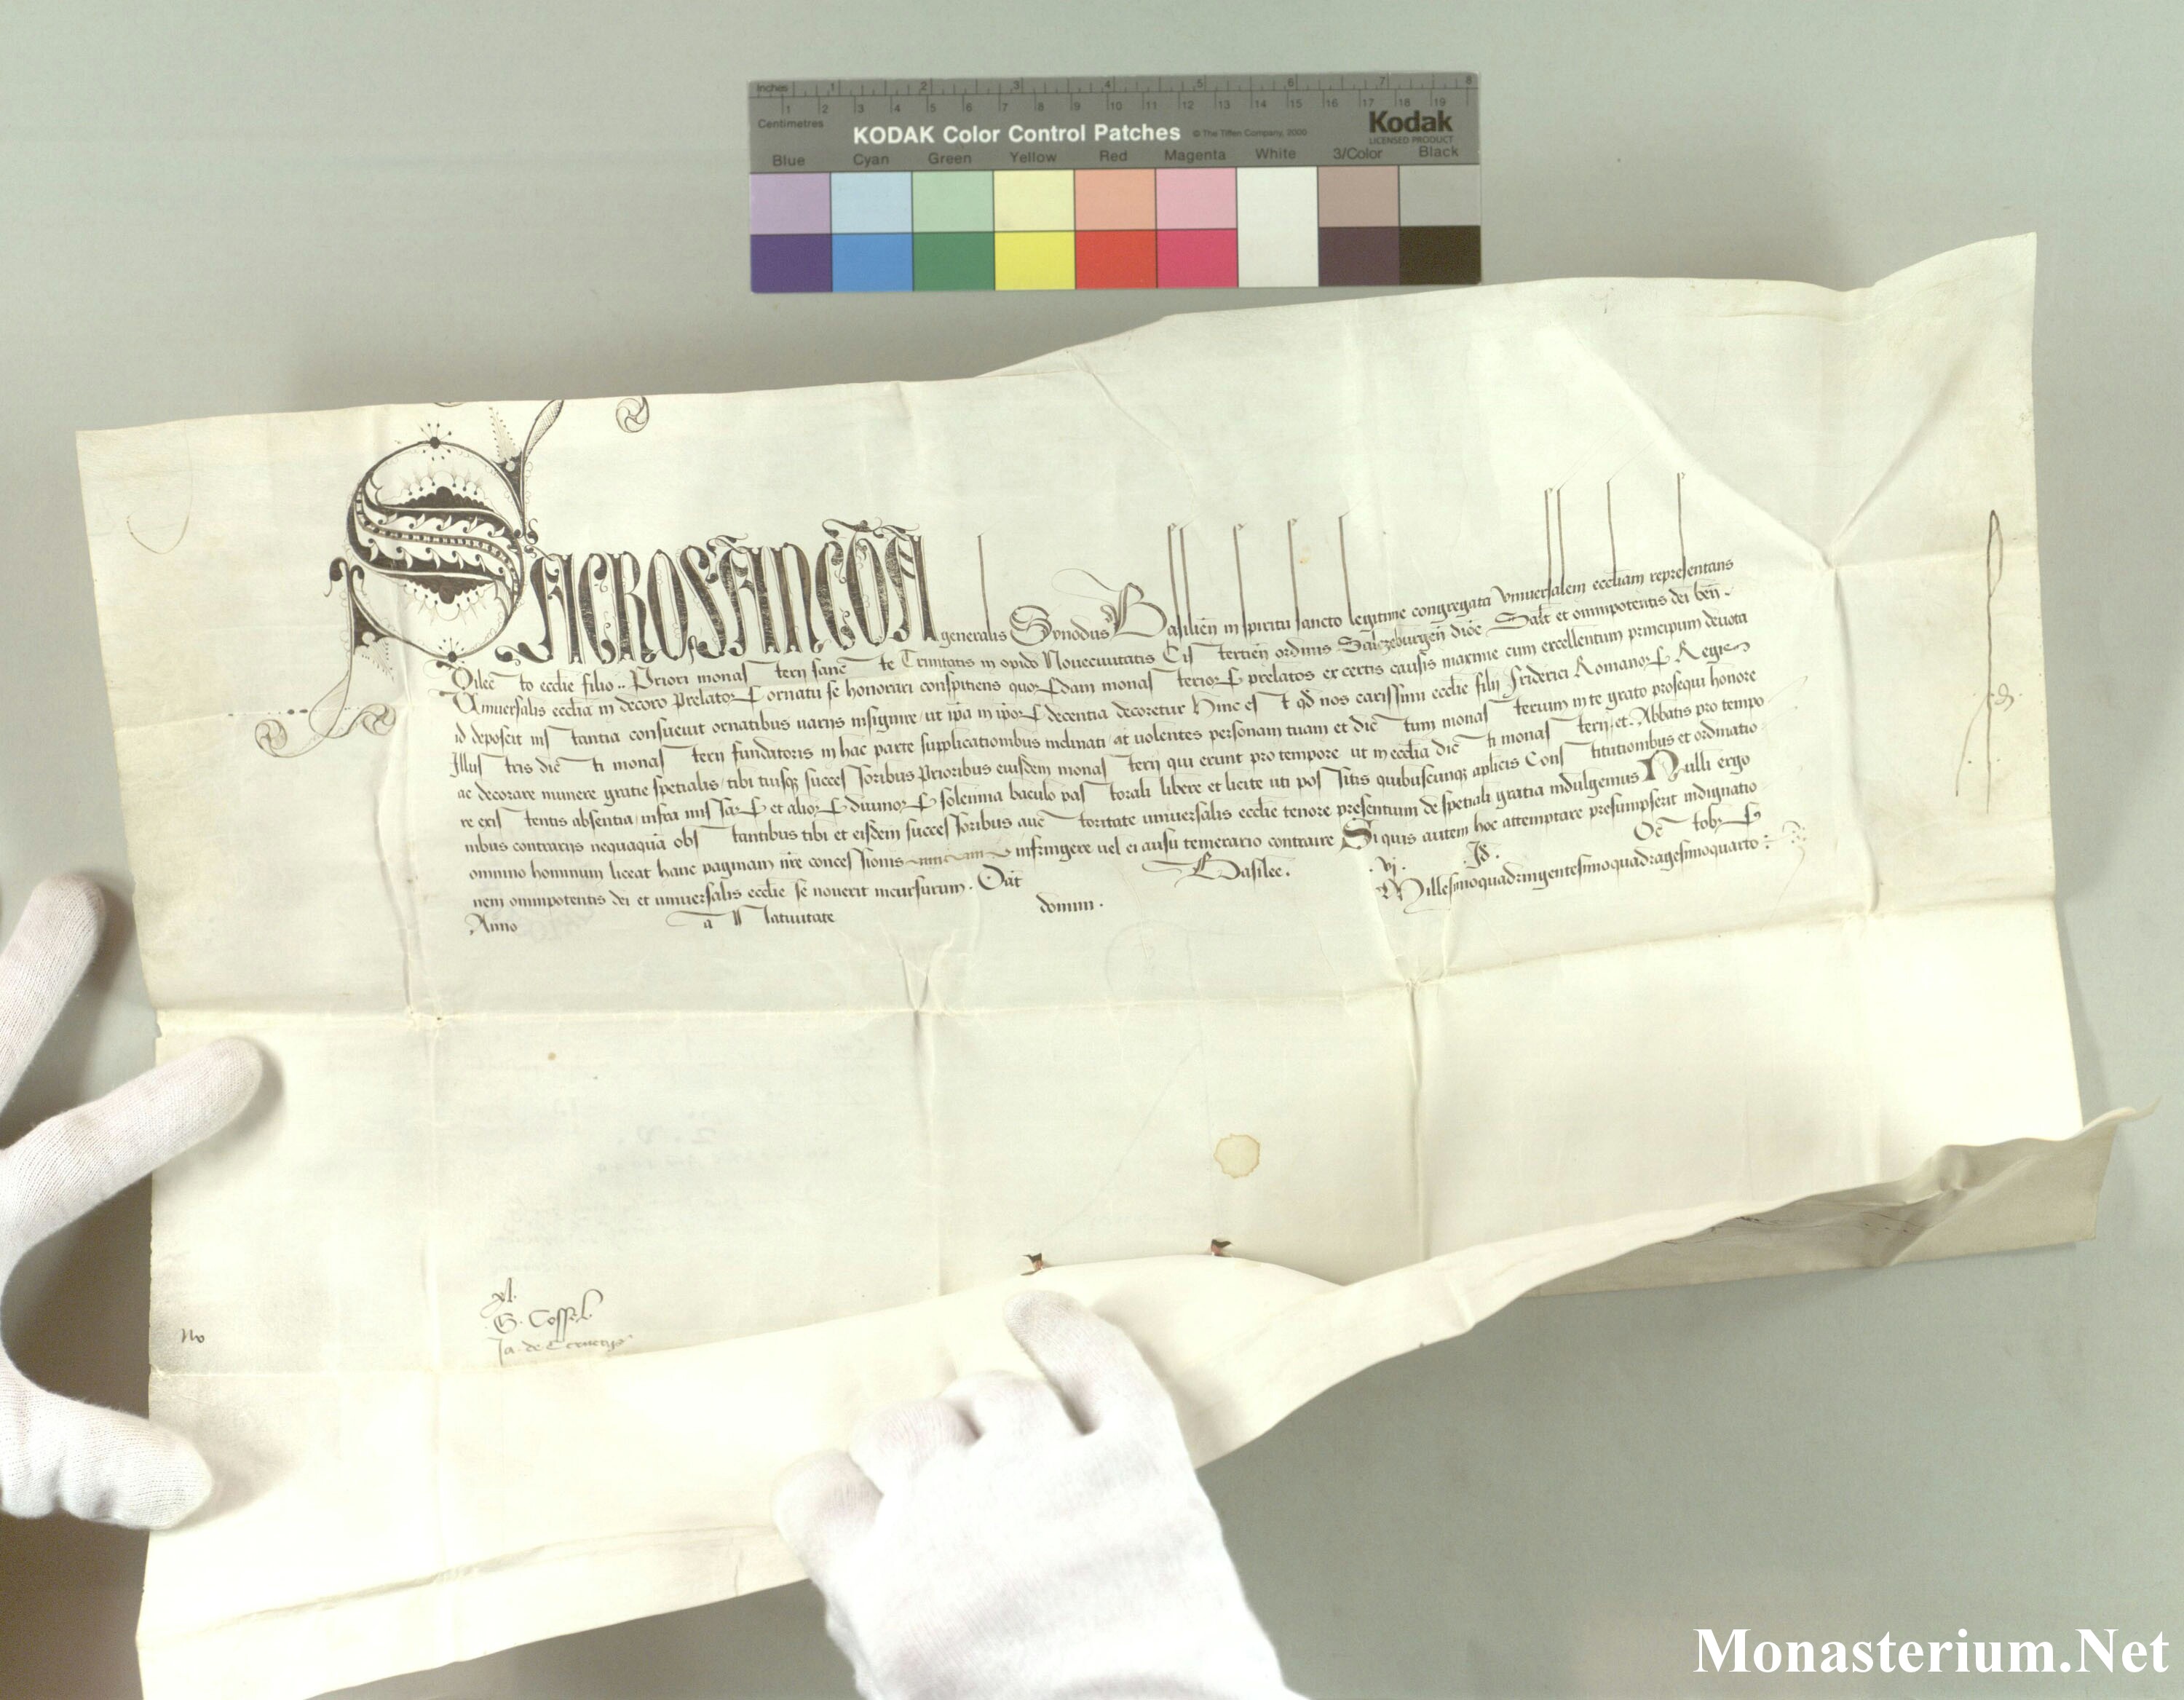 Inches 1 2 3 4 5 6 7 8
1 2 3 4 5 6 7 8 9 10 11 12 13 14 15 16 17 18 19
Centimetres
KODAK Color Control Patches © The Tiffen Company, 2000 Kodak
LICENSED PRODUCT
Blue Cyan Green Yellow Red Magenta White 3/Color Black
SACROSANCTA generalis Synodus Basilien̄ in spiritu sancto legitime congregata Vniuersalem eccl̄iam representans
Dilecto ecclīe filio .. Priori monasterij sancte Trinitatis in opido Nouecivitatis Cistertien̄ ordinis Saltzeburgen̄ dioc̄ Salt̄ et omnipotentis dei ben̄
Vniuersalis eccl̄ia in decoro prelatoꝝ ornatu se honorari conspitiens quorꝝdam monasterioꝝ prelatos ex certis causis maxime cum excellentum principum deuota
id deposcit instantia consueuit ornatibus varijs insignire, ut ip̄a in ip̄oꝝ decentia decoretur Hinc est qđ nos carissimi ecclīe filij Friderici Romanoꝝ Regis
Illustris dicti monasterij fundatoris in hac parte supplicationibus inclinati, ac uolentes personam tuam et dictum monasterium in te grato prosequi honore
ac decorare munere gratie spetialis, tibi tuisqꝫ successoribus Prioribus eiusdem monasterij qui erunt pro tempore ut in eccl̄ia dicti monasterij et Abbatis pro tempo
re existentis absentia, infra missaꝝ et alioꝝ diuinoꝝ solennia baculo pastorali libere et licite uti possitis quibuscunqꝫ ap̄licis Constitutionibus et ordinatio
nibus contrarijs nequaquā obstantibus tibi et eisdem successoribus auctoritate uniuersalis ecclīe tenore presentium de spetiali gratia indulgemus Nulli ergo
omnino hominum liceat hanc paginam nr̄e concessionis infringere uel ei ausu temerario contraire Si quis autem hoc attemptare presumpserit indignatio
nem omnipotentis dei et uniuersalis ecclīe se nouerit incursurum. Dat̄ Basilee. vj. Jd̄. Octobꝝ
Anno a Natiuitate domini. Millesimoquadringentesimoquadragesimoquarto
xl.
G. Coffel
Ja. de Ceruetijs
No
Monasterium.Net